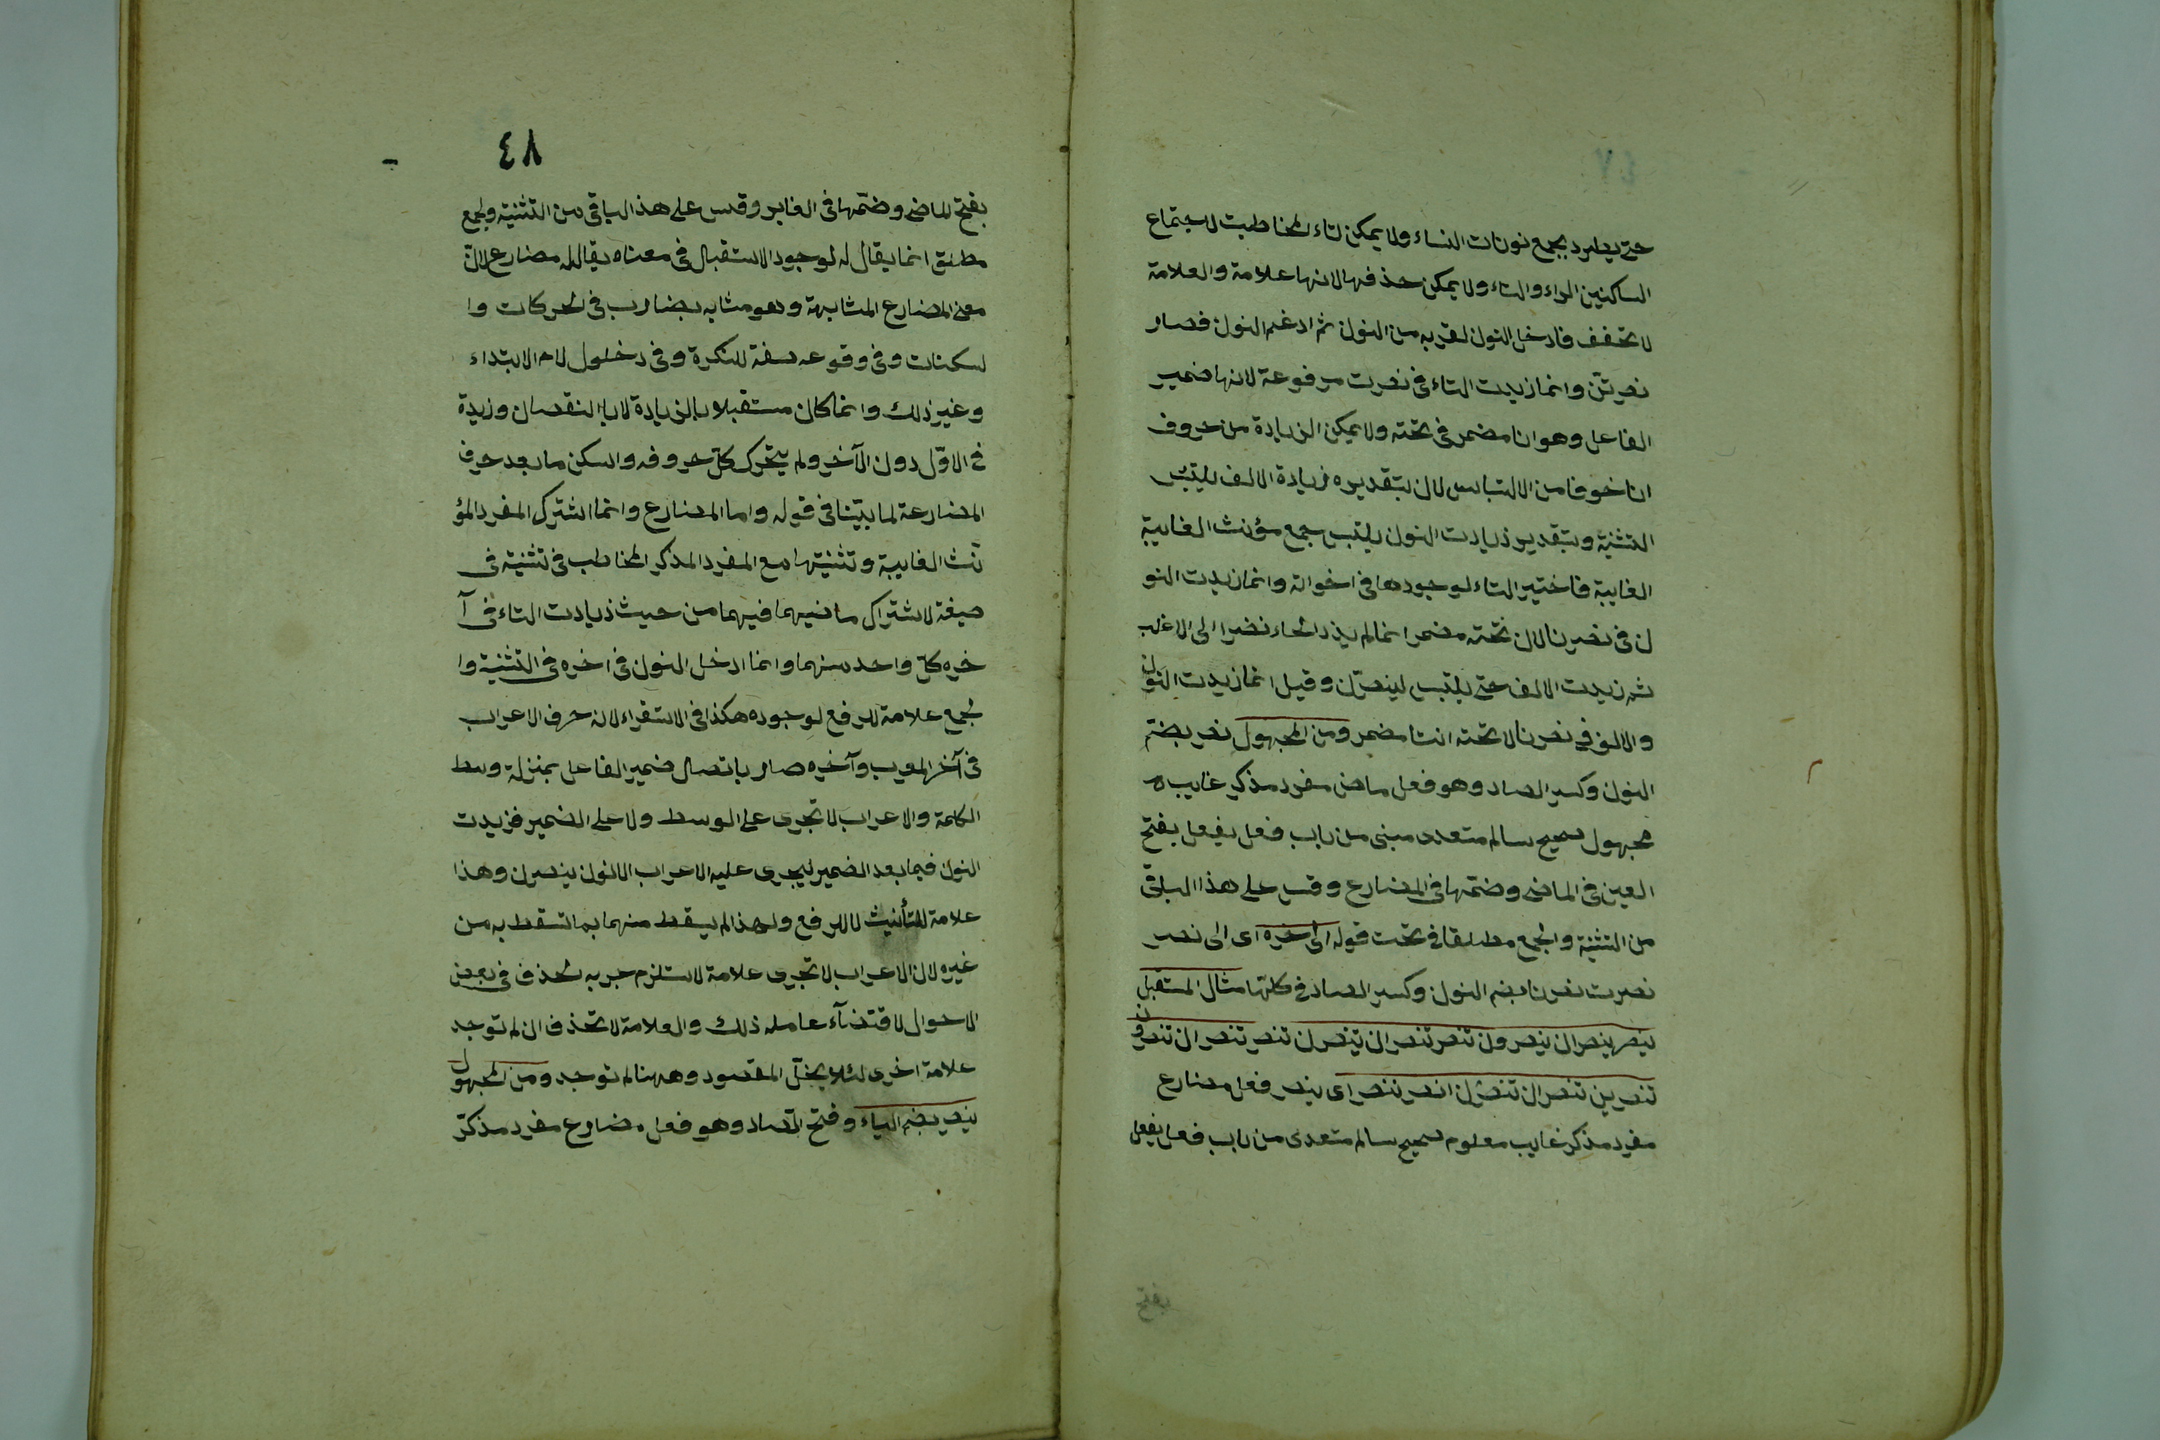 حتى يطرد بجمع نونات النساء ولا يمكن لتاء المخاطبت لاجتماع
الساكنين الراء والتاء ولا يمكن حذفها لانها علامة والعلامة
لا تخفف فادخل النون لقربه من النون ثم ادغم النون فصار
نصرتنّ وانما زيدت التاء في نصرت مرفوعة لانها ضمير
الفاعل وهو انا مضمر في تحته ولا يمكن الزيادة من حروف
انا خوفا من الالتباس لان بتقديره زيادة الالف يلتبس
التثنية وبتقدير زيادت النون يلتبس جمع مؤنث الغايبة
الغايبة فاختير التاء لوجودها في اخواته وانما زيدت النو
ن في نصرنا لان تحته مضمر انما لم يزد الحاء نضرا الى الاغلب
ثم زيدت الالف حتى يلتبس لينصرن وقيل انما زيدت النون
والالف في نصرنا لا تحته انتا مضمر ومن المجهول نصر بضم
النون وكسر الصاد وهو فعل ماض مفرد مذكر غايب
مجهول صحيح سالم متعدد مبنى من باب فعل يفعل بفتح
العين في الماضى وضمها في المضارع وقس على هذا الباقى
من التثنية والجمع مطلقا في تحت قوله الى اخره اى الى نصر
نصرت نصرنا بضم النون وكسر الصاد في كلها مثال المستقبل
ينصر ينصران ينصرون تنصر تنصران ينصرن تنصر تنصران تنصرون
تنصرين تنصران تنصرن انصر ننصر اى ينصر فعل مضارع
مفرد مذكر غايب معلوم صحيح سالم متعدى من باب فعل يفعل
٤٨
بفتح الماضى وضمها في الغابر وقس على هذا الباقى من التثنية والجمع
مطلق انما يقال له لوجود الاستقبال في معناه يقال له مضارع لان
معنى المضارع المشابهة وهو مشابه بضارب في الحركات وا
لسكنات وفي وقوعه صفة للنكرة وفي دخول لام الابتداء
وغير ذلك وانما كان مستقبلا بالزيادة لا بالنقصان وزيدة
في الاوّل دون الآخر ولم يتحرك كلّ حروفه واسكن ما بعد حرف
المضارعة لما بيّنا في قوله واما المضارع وانما اشترك المفرد المؤ
نث الغايبة وتثنيتها مع المفرد المذكر المخاطب في تثنية في
صيغة لاشتراك ما نيهما فيهما من حيث زيادت التاء في آ
خره كلّ واحد منهما وانما ادخل النون في اخره في التثنية وا
لجمع علامة للرفع لوجوده هكذا في الاستقراء لانه حرف الاعراب
في آخر المعرب وآخره صار باتصال ضمير الفاعل بمنزلة وسط
الكلمة والاعراب لا تجرى على الوسط ولا على الضمير فزيدت
النون فيما بعد الضمير ليجرى عليه الاعراب الا نون ينصرن وهذا
علامة للتأنيث لا للرفع ولهذا لم يسقط منهما بما تسقط به من
غيره لان الاعراب لا تجرى علامة لاستلزم جربه الحذف في بعض
الاحوال لاقتضآء عامله ذلك والعلامة لا تحذف ان لم توجد
علامة اخرى لئلا يختلّ المقصود وههنا لم توجد ومن المجهول
ينصر بضم الياء وفتح الصاد وهو فعل مضارع مفرد مذكر